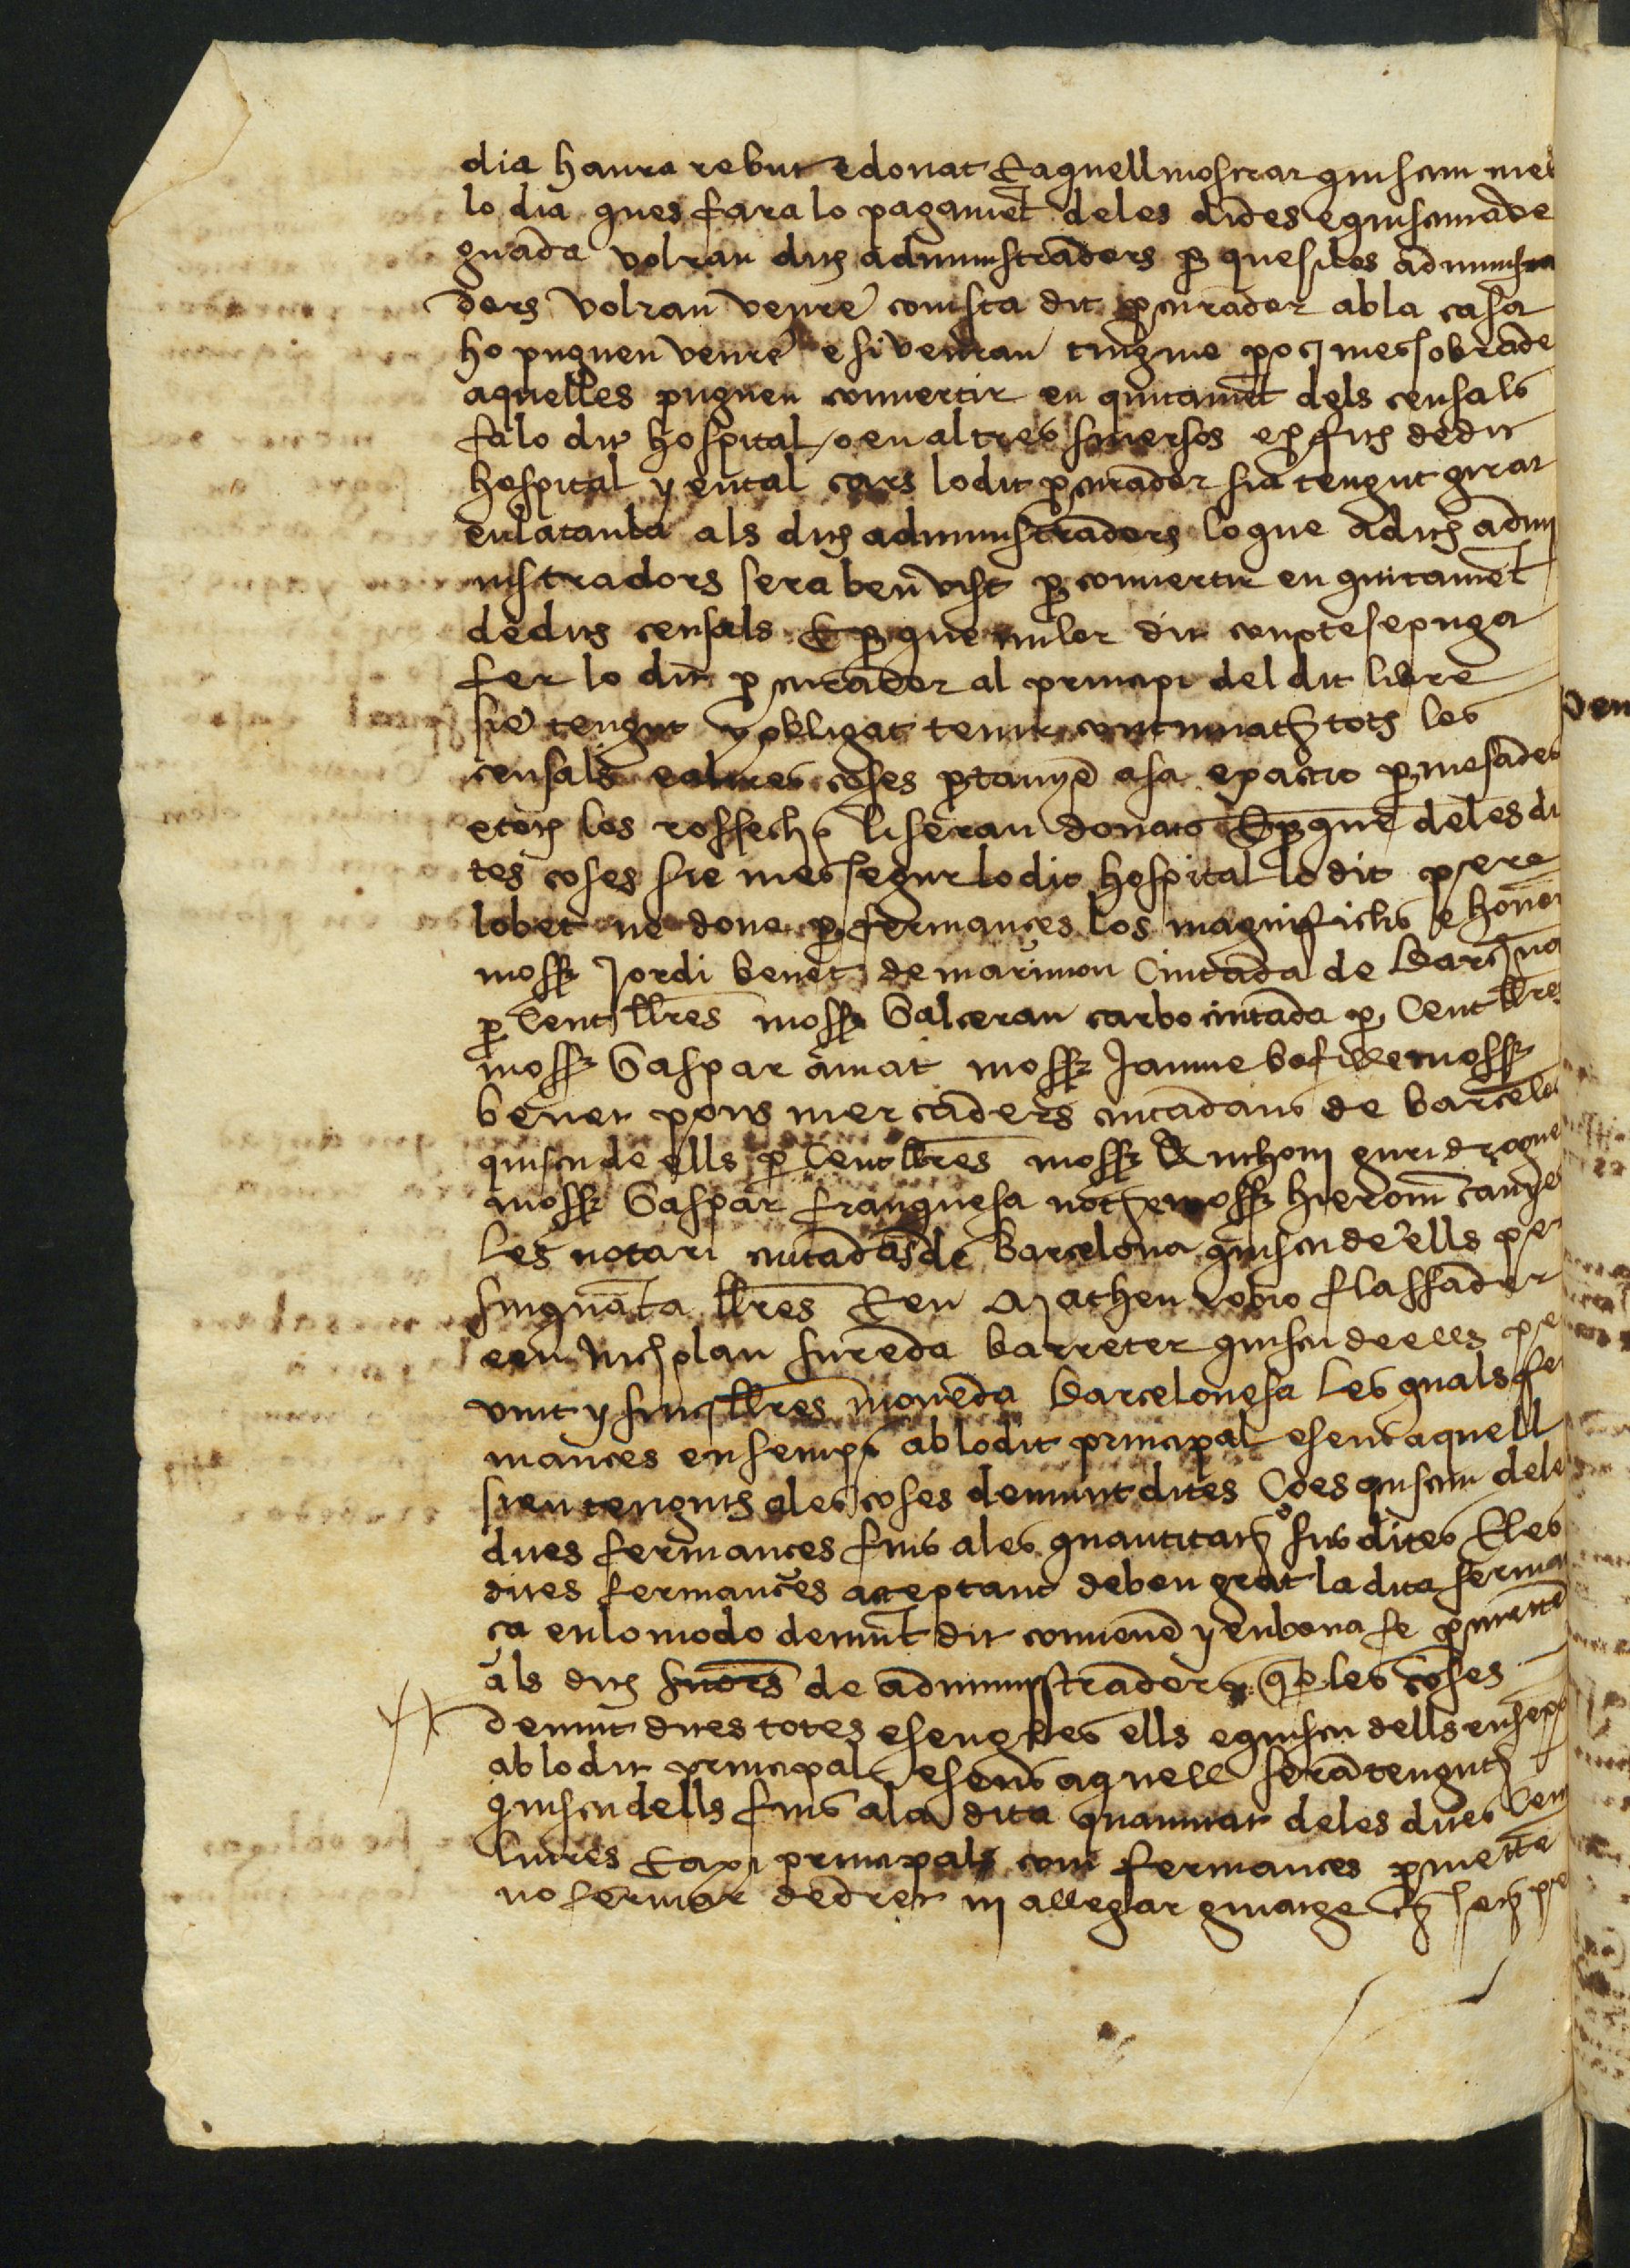 dia haura rebut e donat E aquell mostrar quiscun mes
lo dia ques fara lo pagamēt de les dides e quiscunade
guada volran dits administradors p que si los administra
dors volran veure com sta dit pcurador ab la casa
ho puguen veure e si veuran tingue poch mes sobrade
aquelles puguen conuertir en quitamēt dels censals
fa lo dit hospital / o en altres smersos e pfits de dit
hospital y en tal cars lo dit pcurador sia tengut girar
en la taula als dits administradors lo que a dits admi
nistradors sera ben vist p conuertir en quitamēt
de dits censals E p que millor dit compte se puga
fer lo dit pcurador al principi del dit libre
sie tengut y obligat tenir continuats tots los
censals e altres coses ptanyē a sa
e tots los rossechs li seran donats E p que de les di
tes coses sie mes segur lo dit hospital lo dit pere
lobet ne dona p fermances los magnifichs e honor
moss Jordi benet de marimon Ciutada de Barcͣna
p Cent llr̄es moss Galceran carbo ciutada p Cent llr̄es
moss Gaspar amat moss Jaume bofill e moss
benet pons mercaders ciutadans de barcelo
quiscu de ells p Cent llr̄es moss Anthoni guri drogue
moss Gaspar franquesa not e moss hieronī canye
les notari ciutadās de Barcelona quiscu de ells per
sinquāta llr̄es E en Matheu flassader
e en Nich plan sureda barreter quiscu de ells per
vint y sinch llr̄es moneda Barcelonesa les quals fer
mances ensemps ab lo dit principal e sens aquell
sien tenguts a les coses demunt dites Co es quiscun de le
dites fermances fins a les quantitats sus dites E les
dites fermances acceptant de bon grat la dita ferma
ça en lo modo demūt dit conuenē y en bona fe pmettē
als dits snōrs de administradors q p les coses
demūt dites totes e sengles ells e quiscu dells ensēps
ab lo dit principal e sens aquell serā tenguts
quiscu dells fins a la dita quantitat de les dites Cen
liures E axi principals com fermances pmettē
no fermar de dret ni allegar guiatge